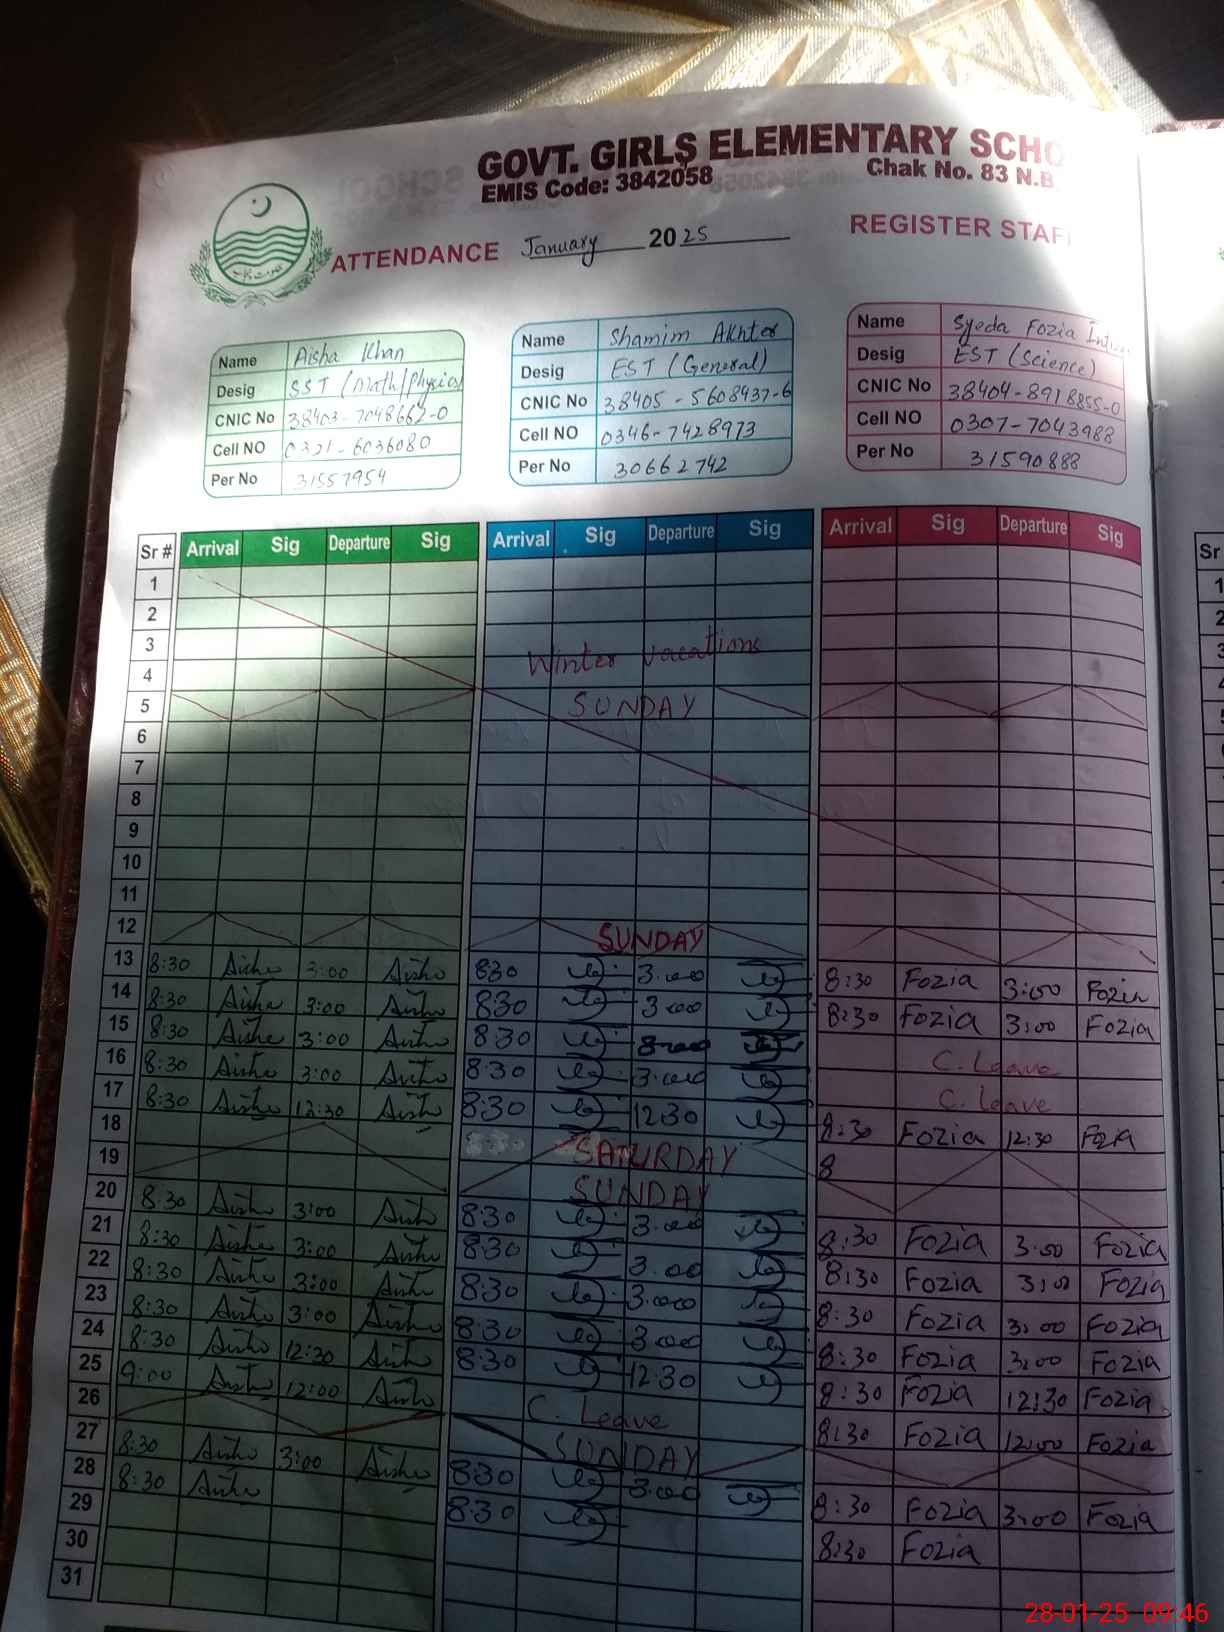 GOVT. GIRLS ELEMENTARY SCHO
EMIS Code: 3842058
Chak No. 83 N.B
ATTENDANCE January 2025 REGISTER STAF
حکومت پنجاب
Name Aisha Khan
Desig SST (Math/Physics)
CNIC No 38403-7048662-0
Cell NO 0321-6036080
Per No 31557954
Name Shamim Akhter
Desig EST (General)
CNIC No 38405-5608437-6
Cell NO 0346-7428973
Per No 30662742
Name Syeda Fozia
Desig EST (Science)
CNIC No 38404-8918855-0
Cell NO 0307-7043988
Per No 31590888
Sr # Arrival Sig Departure Sig Arrival Sig Departure Sig Arrival Sig Departure Sig
1
2
3 Winter vacations
4
5 SUNDAY
6
7
8
9
10
11
12 SUNDAY
13 8:30 Aisha 3:00 Aisha 8:30 3:00 8:30 Fozia 3:00 Fozia
14 8:30 Aisha 3:00 Aisha 8:30 3:00 8:30 Fozia 3:00 Fozia
15 8:30 Aisha 3:00 Aisha 8:30 C. Leave
16 8:30 Aisha 3:00 Aisha 8:30 3:00 C. leave
17 8:30 Aisha 12:30 Aisha 8:30 12:30 8:30 Fozia 12:30 Fozia
18 SATURDAY 8
19 SUNDAY
20 8:30 Aisha 3:00 Aisha 8:30 3:00 8:30 Fozia 3:00 Fozia
21 8:30 Aisha 3:00 Aisha 8:30 3:00 8:30 Fozia 3:00 Fozia
22 8:30 Aisha 3:00 Aisha 8:30 3:00 8:30 Fozia 3:00 Fozia
23 8:30 Aisha 3:00 Aisha 8:30 3:00 8:30 Fozia 3:00 Fozia
24 8:30 Aisha 12:30 Aisha 8:30 12:30 8:30 Fozia 12:30 Fozia
25 9:00 Aisha 12:00 Aisha C. Leave 8:30 Fozia 12:00 Fozia
26 SUNDAY
27 8:30 Aisha 3:00 Aisha 8:30 3:00 8:30 Fozia 3:00 Fozia
28 8:30 Aisha 8:30 8:30 Fozia
29
30
31
Sr
1
2
28-01-25 09:46